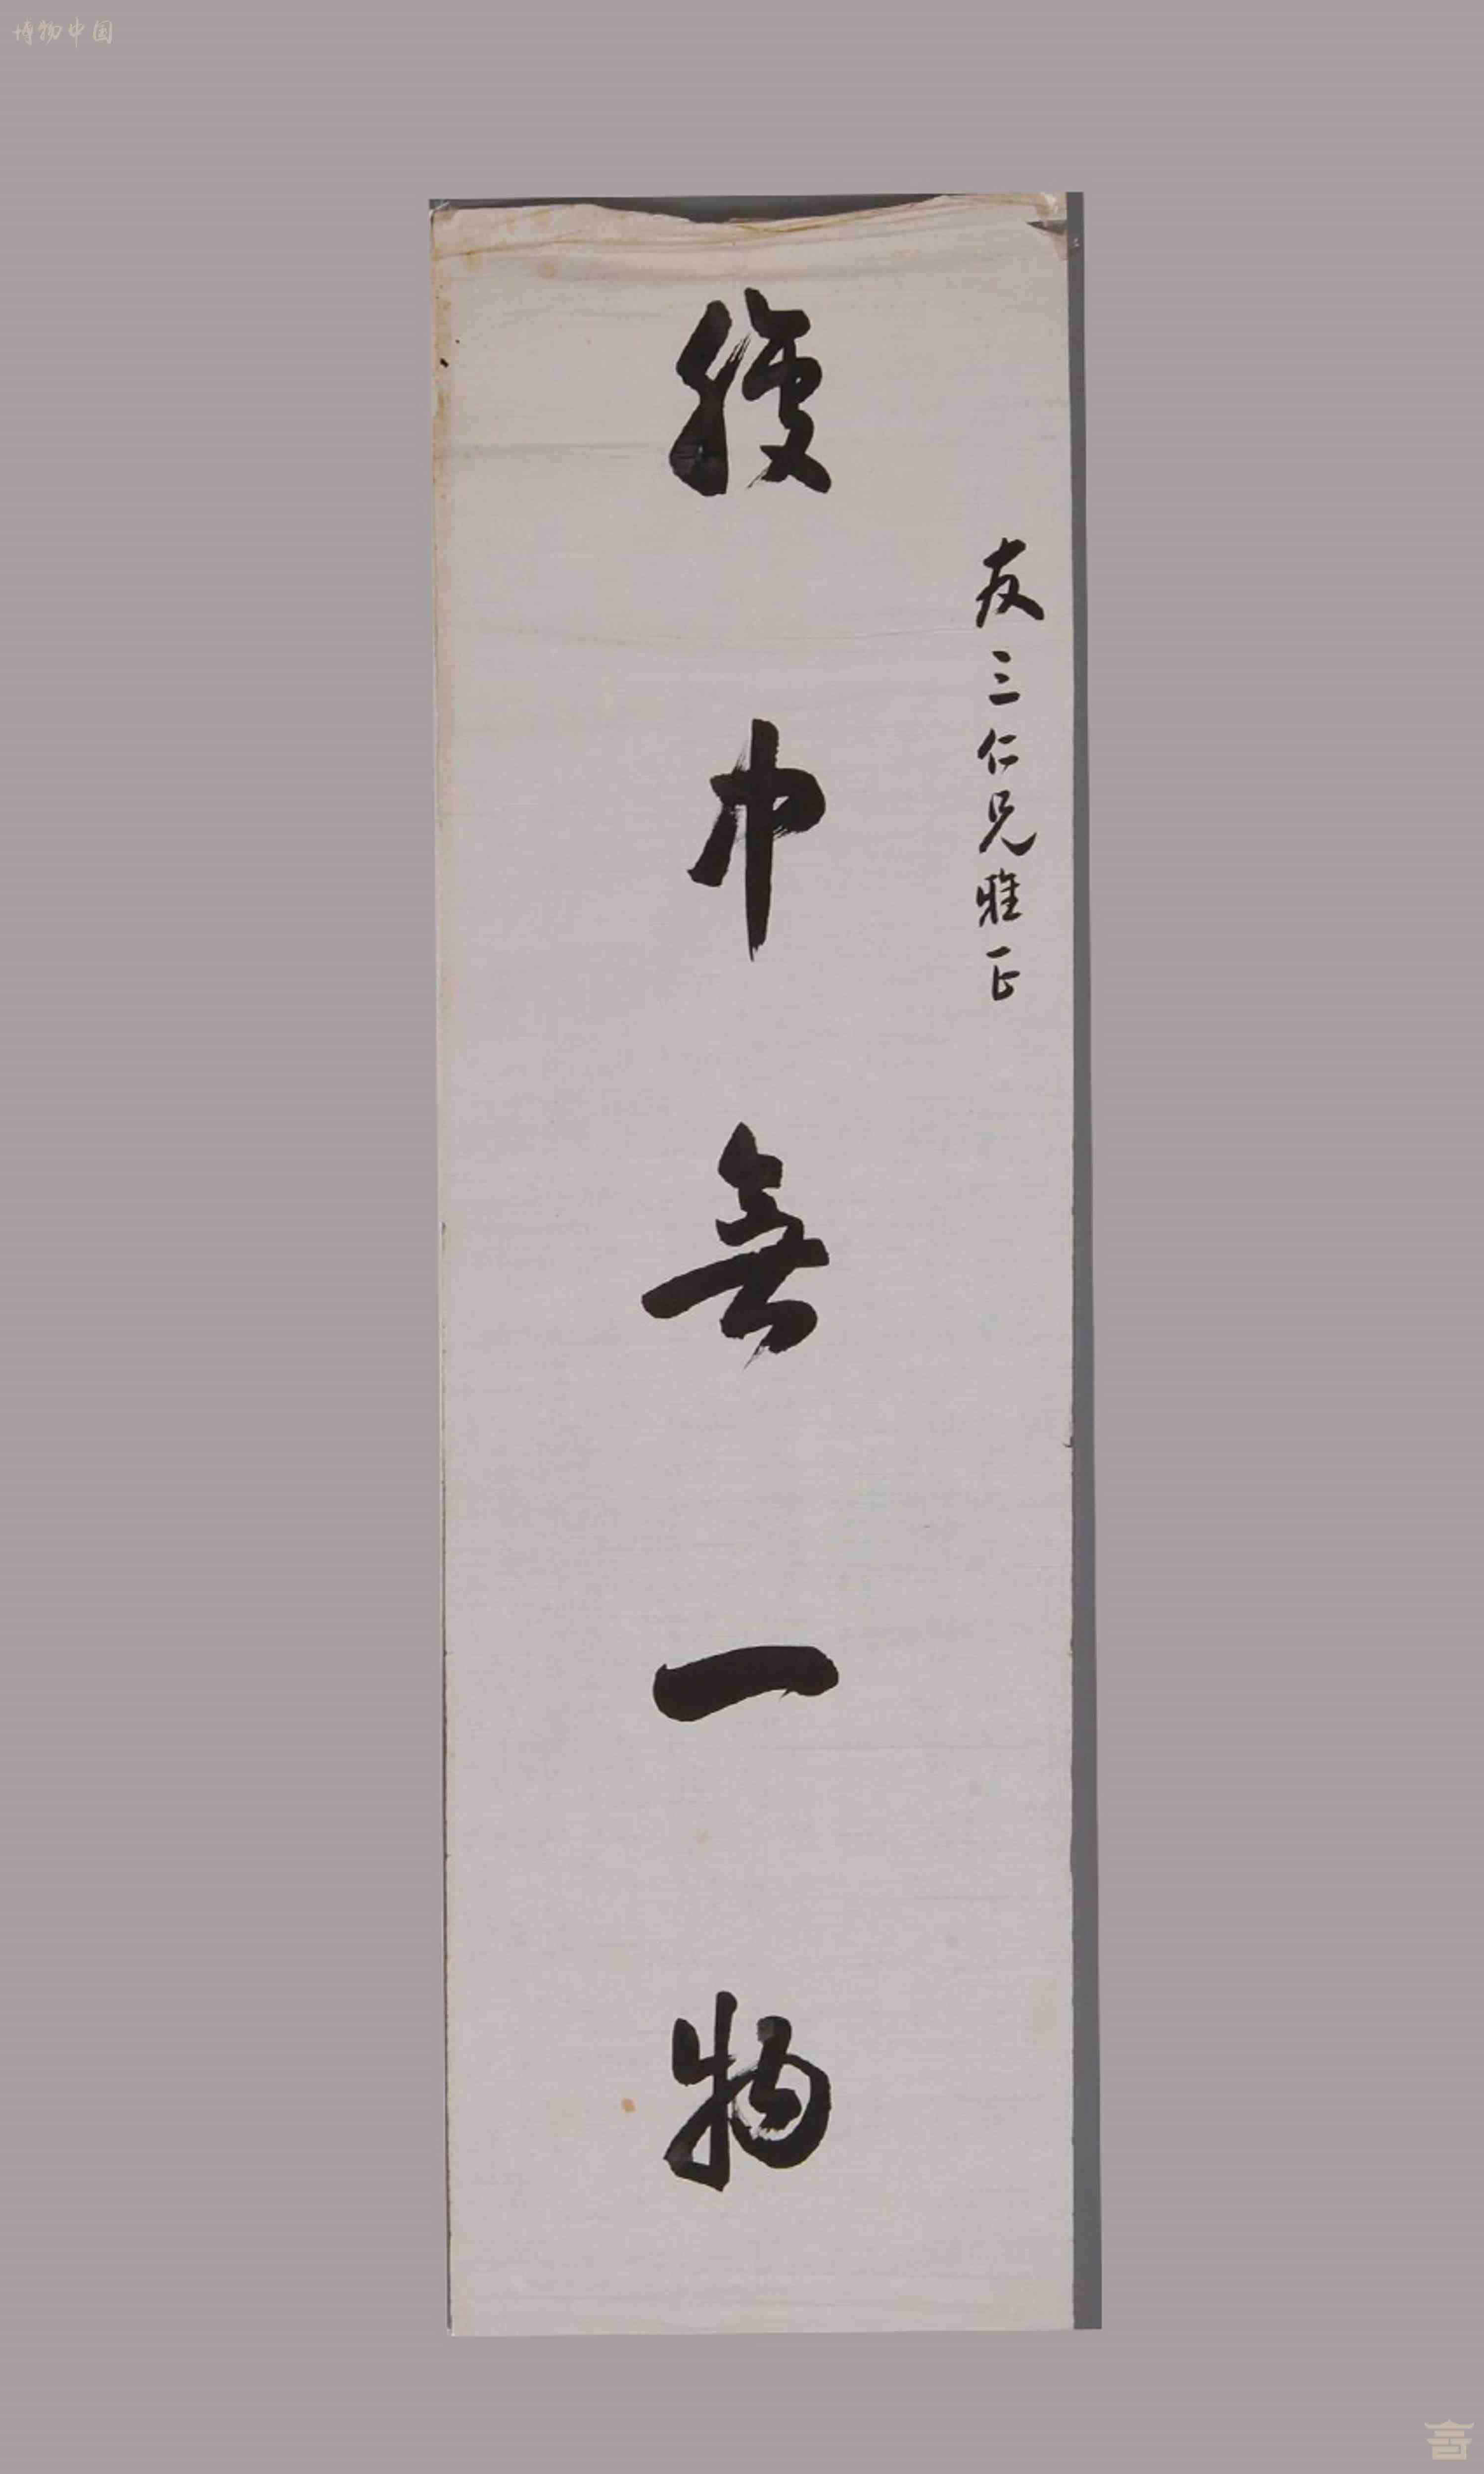 友三仁兄雅正
腹中無一物
博物中国